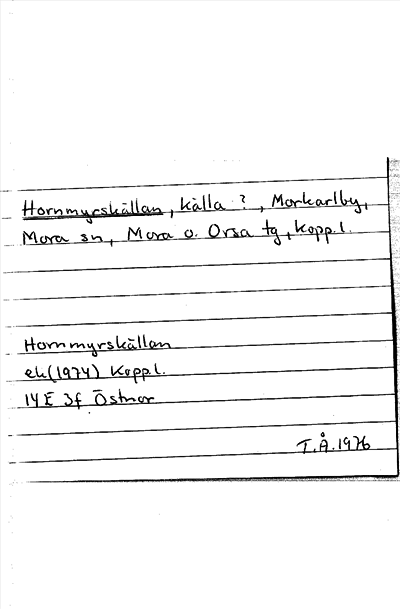 Hornmyrskällan, källa ?, Morkarlby,
Mora sn, Mora o. Orsa tg, Kopp.l.
Hornmyrskällan
ek(1974) Kopp.l.
14E 3f Östnor
T.Å.1976